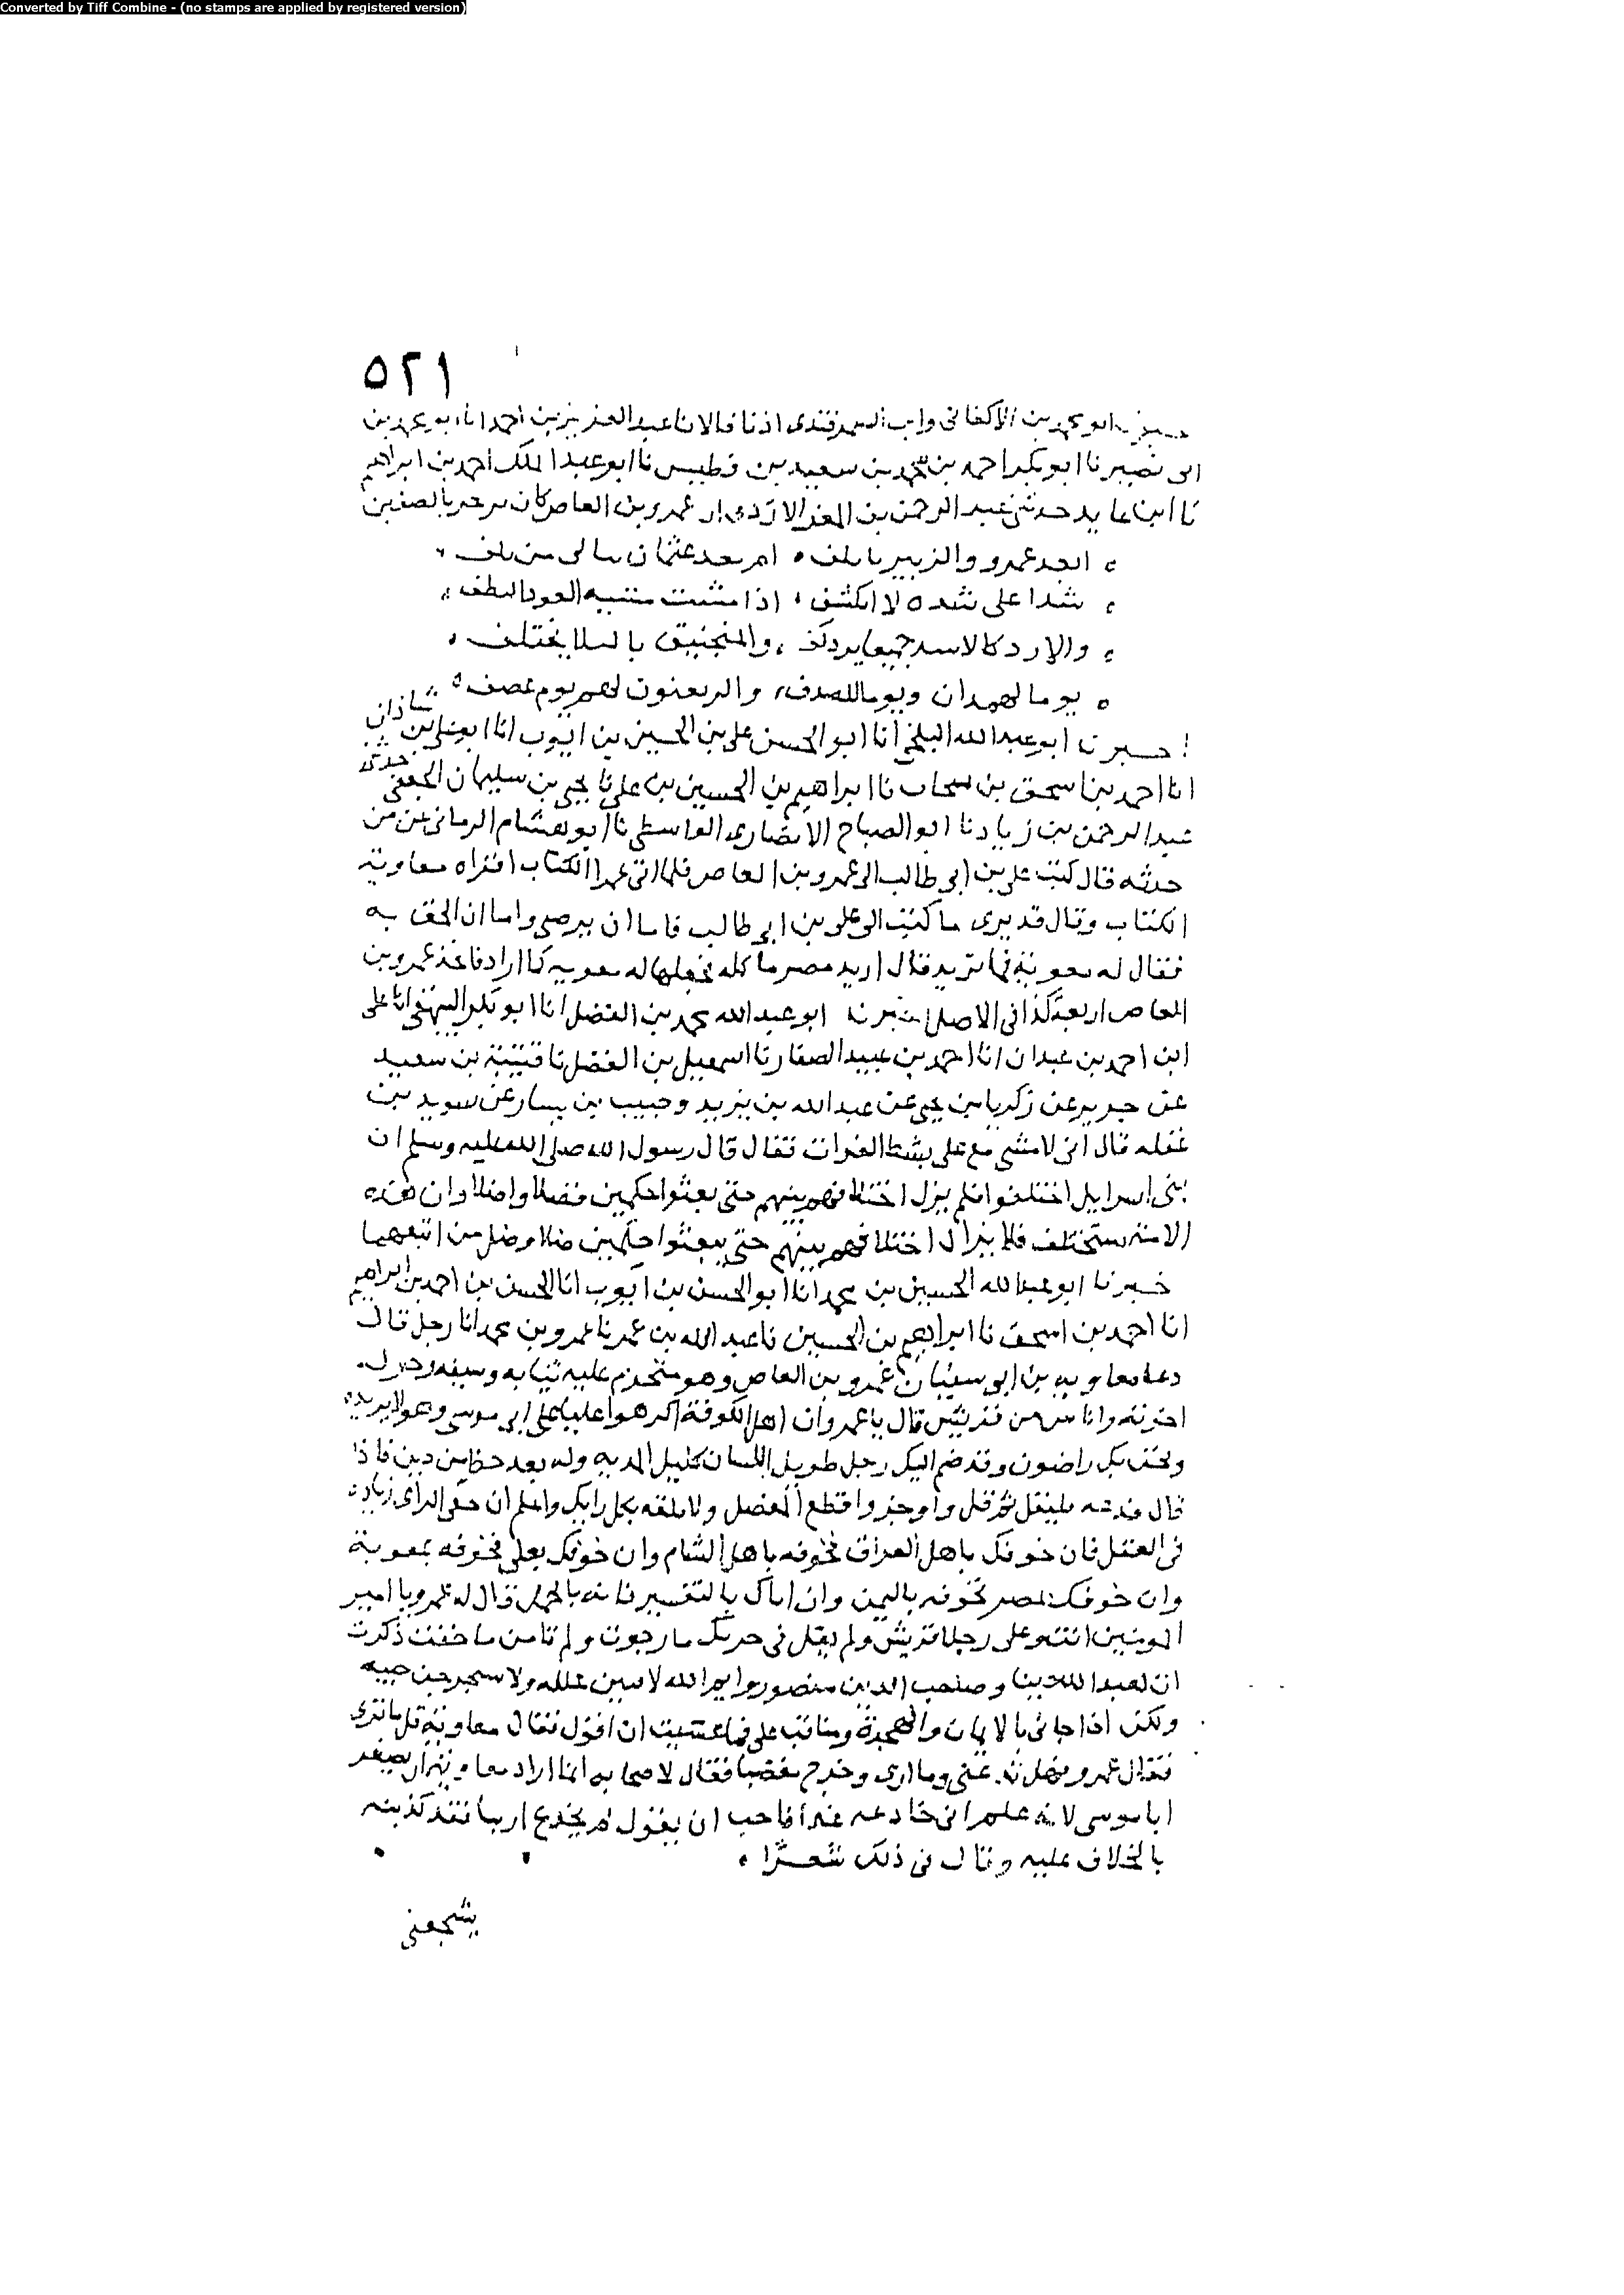 Converted by Tiff Combine - (no stamps are applied by registered version)
٥٢١
ابو محمد بن الاكفانى وابن السمرقندى اذنا قالا نا عبد العزيز بن احمد انا ابو محمد بن
ابى نصير نا ابو بكر احمد بن محمد بن سعيد بن فطيس نا ابو عبد الملك احمد بن ابراهيم
نا ابن عايد حدثنى عبد الرحمن بن الازدى ان عمرو بن العاص كان يرتجز بالصفين
عمرو والزبير ياتلف ام بعد عثمان من تلف
شدا على شده لا انكشف اذا مشيت مشيه العود
والازد كالاسد جميعا والمنجنيق لا يختلف
يوما لهمدان ويوما للصدف والربعيون لهم يوم عصف
اخبرنا ابو عبد الله البلخى انا ابو الحسن على بن الحسين بن ايوب انا ابو على بن شاذان
انا احمد بن اسحق بن نا ابراهيم بن الحسين بن على نا يحيى بن سليمان الجعفى حدثنى
عبد الرحمن بن زياد نا ابو الصباح الانصارى الواسطى نا ابو هشام الرمانى عن من
حدثه قال كتب على بن ابى طالب الى عمرو بن العاص فلما اتى عمرا الكتاب اقراه معاوية
الكتاب وقال قد يرى ما كتب الى على بن ابى طالب فاما ان يرضى واما ان الحق به
فقال له معوية فما تريد قال اريد مصر ما كله فجعلها له معويه كما اراد عمرو بن
العاص اربعة كذا فى الاصل اخبرنا ابو عبد الله محمد بن الفضل انا ابو بكر البيهقى انا على
ابن احمد بن عبدان انا احمد بن عبيد الصفار نا اسمعيل بن الفضل نا قتيبة بن سعيد
عن جرير عن زكريا بن يحيى عن عبد الله بن يزيد وحبيب بن يسار عن سويد بن
غفله قال انى لامشى مع على بشط الفرات فقال قال رسول الله صلى الله عليه وسلم ان
بنى اسرايل اختلفوا فلم يزل اختلافهم بينهم حتى بعثوا حكمين فضلا واضلا وان هذه
الامة ستختلف فلا يزال اختلافهم بينهم حتى يبعثوا حكمين ضلا وضل من اتبعهما
خبرنا ابو عبد الله الحسين بن محمد انا ابو الحسن بن ايوب انا الحسن بن احمد بن ابراهيم
انا احمد بن اسحق نا ابراهيم بن الحسين نا عبد الله بن عمر نا عمرو بن محمد انا رجل قال
دعا معاويه بن ابى سفيان عمرو بن العاص وهو متحزم عليه ثيابه وسيفه وحول
اخوته واناس من قريش قال يا عمرو ان اهل الكوفة اكرهوا عليا على ابى موسى وهو لا يريده
ونحن بك راضون وقد ضم اليك رجل طويل اللسان كليل المديه وله بعد حظ من دين فاذا
قال فدعه فليقل ثم قل واوجز واقطع المفصل ولا تلقه بكل رايك واعلم ان خفى الراى زيادة
فى العقل فان خوفك باهل العراق فخوفه باهل الشام وان خوفك بعلى فخوفه بمعوية
وان خوفك بمصر فخوفه باليمن وان اتاك بالتفسير فاته بالجمل فقال له عمرو يا امير
المومنين انت وعلى رجلا قريش ولم تقل فى حربك ما رجوت ولم تامن ما خفت ذكرت
ان لعبد الله دينا وصاحب الدين منصور وايم الله لافنين علله ولاستخرجن خبيه
ولكن اذا جانى بالايمان والهجرة ومناقب على فما عسيت ان اقول فقال معاوية قل ما ترى
فقال عمرو فهل تدعنى وما ارى وخرج مغضبا فقال لاصحابه انما اراد معاوية ان يصغر
ابا موسى لانه علم انى خادعه غدا فاحب ان يقول لم يخدع اريبا فقد كذبته
بالخلاف عليه وقال فى ذلك شعرا
يشجعنى